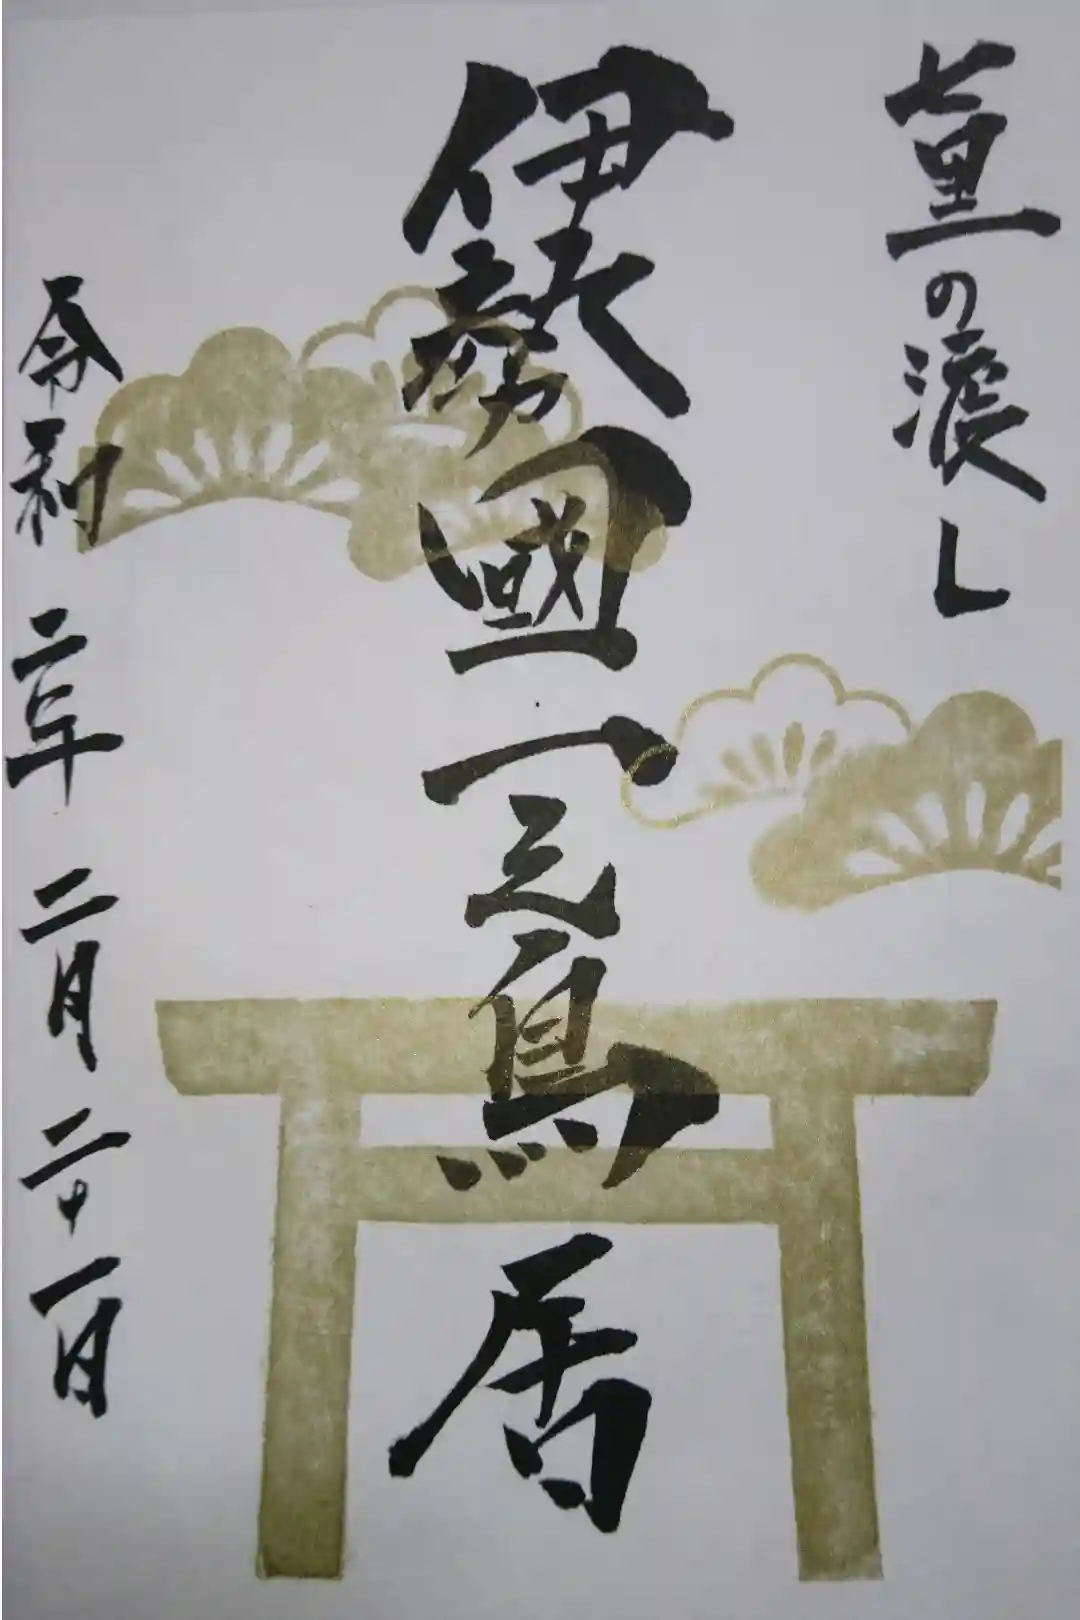 七里の渡し
伊勢國一之鳥居
令和二年二月二十一日